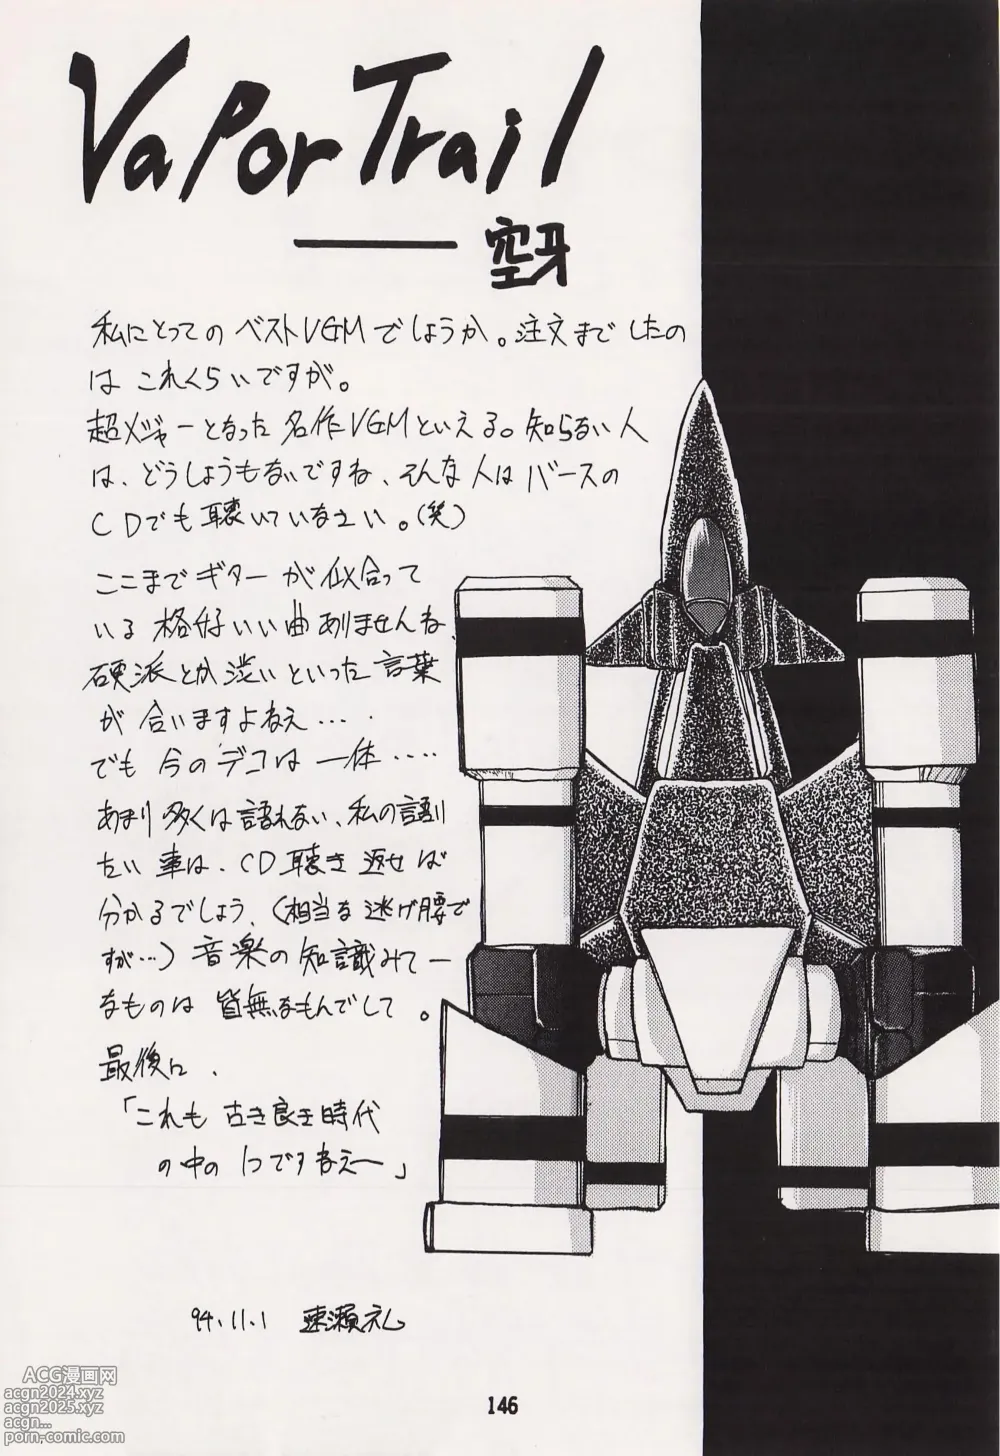 Vapor Trail
── 空牙
私にとってのベストVGMでしょうか。注文までしたの
は これくらいですが。
超メジャーとなった 名作VGMといえる。知らない人
は、どうしようもないですね、そんな人は バースの
CDでも 聴いていなさい。(笑)
ここまで ギターが 似合って
いる 格好いい曲 ありませんね、
硬派とか 渋いといった 言葉
が 合いますよねえ・・・・
でも 今の デコは 一体・・・・
あまり 多くは 語れない、私の語り
たい 事は、CD 聴き 返せば
分かるでしょう、(相当な 逃げ腰で
すが・・・) 音楽の 知識みてー
なものは 皆無なもんでして。
最後に、
「これも 古き良き時代
の中の 1つですねえー」
94.11.1 速瀬礼
146
ACG漫画网
acgn2024.xyz
acgn2025.xyz
acgn...
porn-comic.com